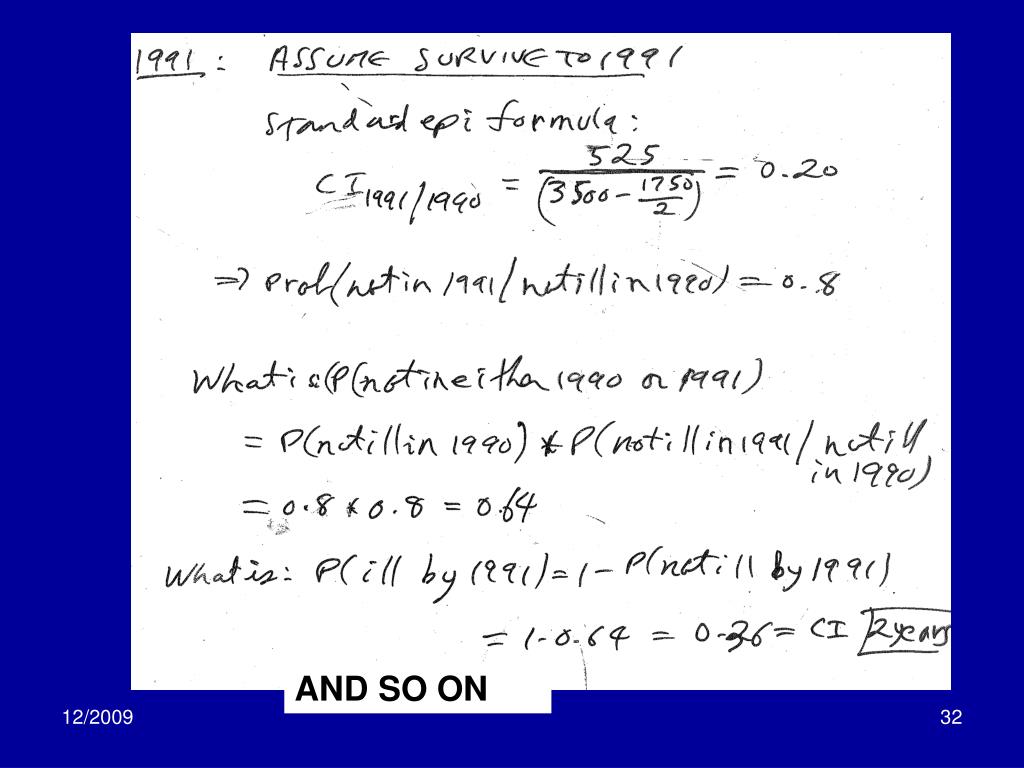 1991: ASSUME SURVIVE TO 1991
Standard epi formula:
CI 1991/1990 = 525 / (3500 - 1750/2) = 0.20
=> Prob(not in 1991/not ill in 1990) = 0.8
What is (P(not in either 1990 or 1991)
= P(not ill in 1990) * P(not ill in 1991/not ill
in 1990)
= 0.8 * 0.8 = 0.64
What is: P(ill by 1991) = 1 - P(not ill by 1991)
= 1-0.64 = 0.36 = CI 2 years
AND SO ON
12/2009
32